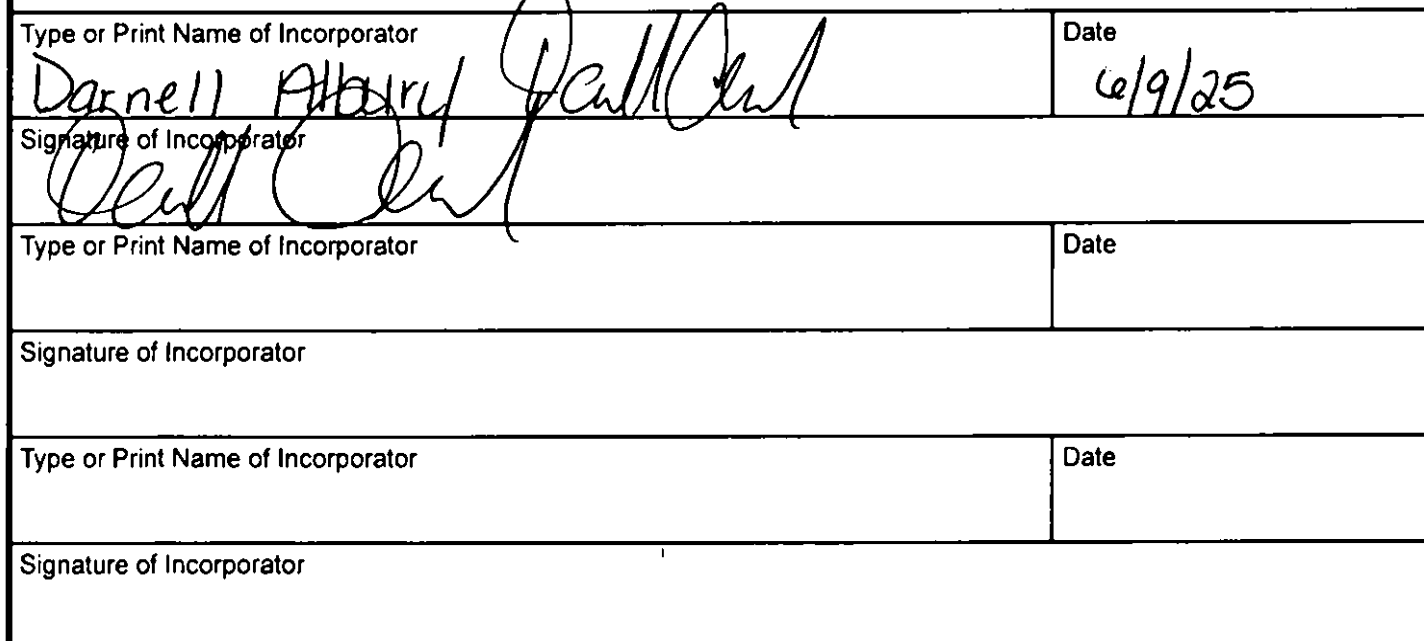 Type or Print Name of Incorporator
Date
Darnell Albury
6/9/25
Signature of Incorporator
Type or Print Name of Incorporator
Date
Signature of Incorporator
Type or Print Name of Incorporator
Date
Signature of Incorporator